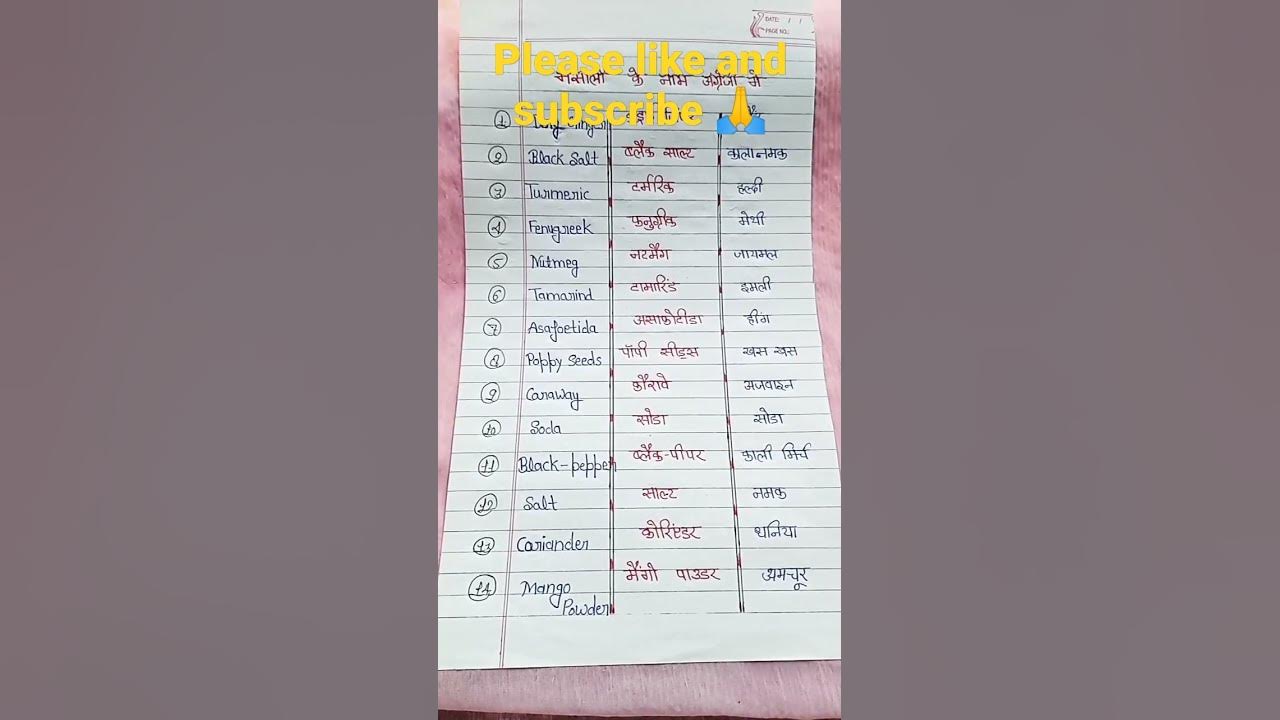 DATE: / /
PAGE NO.:
Please like and
subscribe 🙏
मसालों के नाम अंग्रेजी में
1
2 Black Salt ब्लैक साल्ट कालानमक
3 Turmeric टर्मरिक हल्दी
4 Fenugreek फनुग्रीक मेथी
5 Nutmeg नटमैग जायफल
6 Tamarind टामारिंड इमली
7 Asafoetida असाफोटीडा हींग
8 Poppy Seeds पॉपी सीड्स खस खस
9 Caraway कैरावे अजवाइन
10 Soda सोडा सोडा
11 Black-pepper ब्लैक-पीपर काली मिर्च
12 Salt साल्ट नमक
13 Coriander कोरिएंडर धनिया
14 Mango मैंगो पाउडर अमचूर
Powder